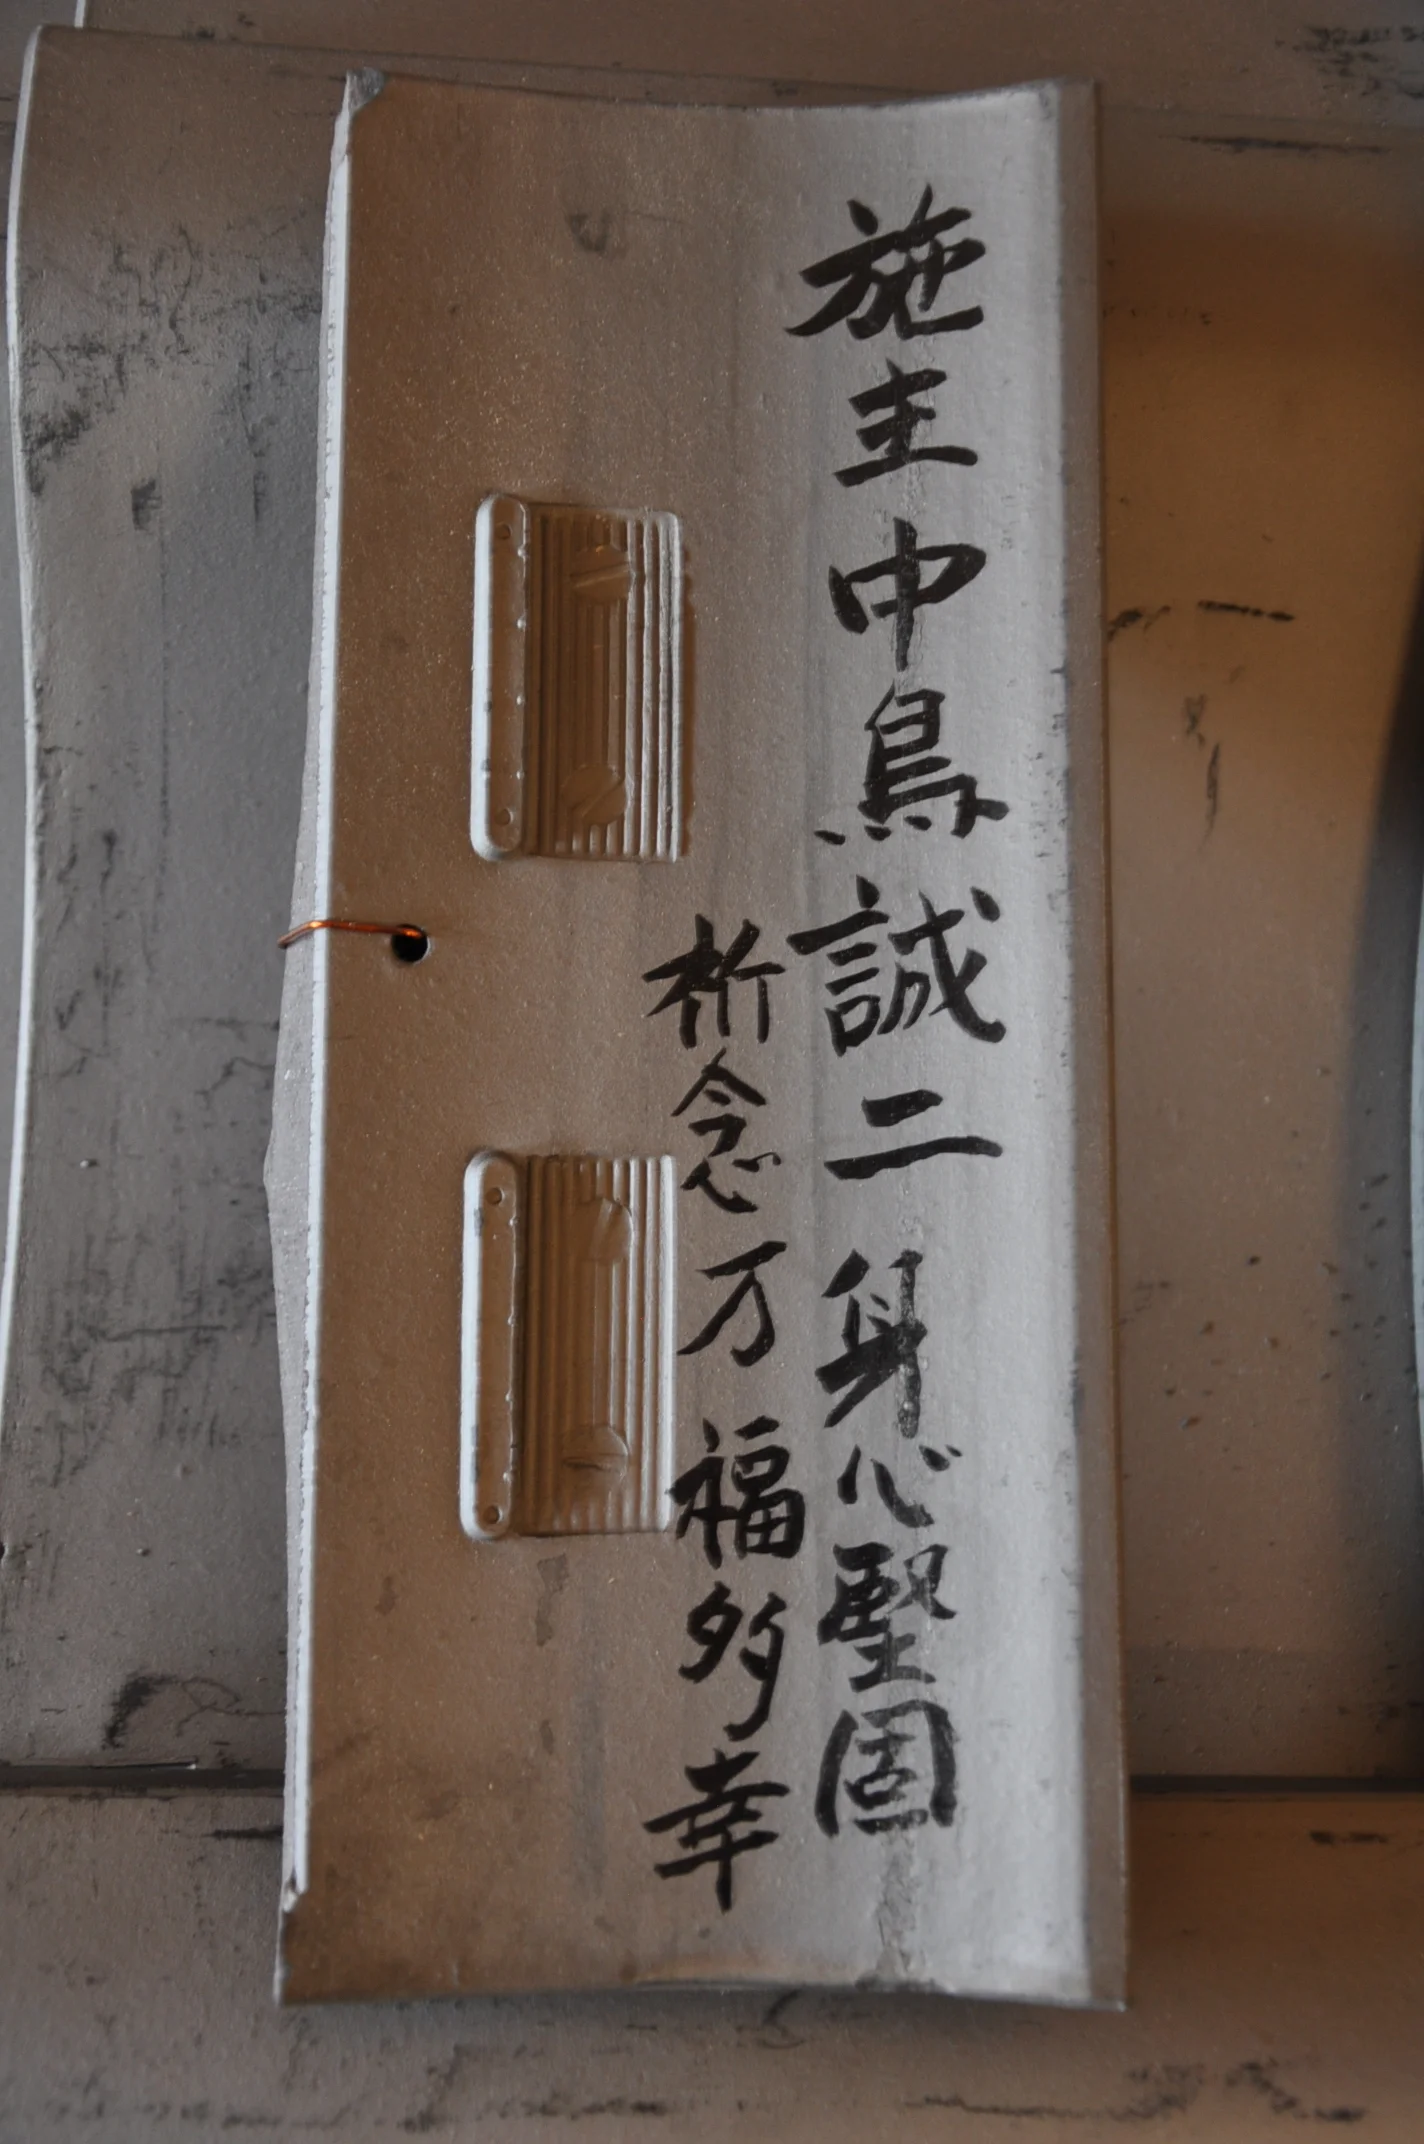 施主中島誠二 身心堅固
祈念万福多幸